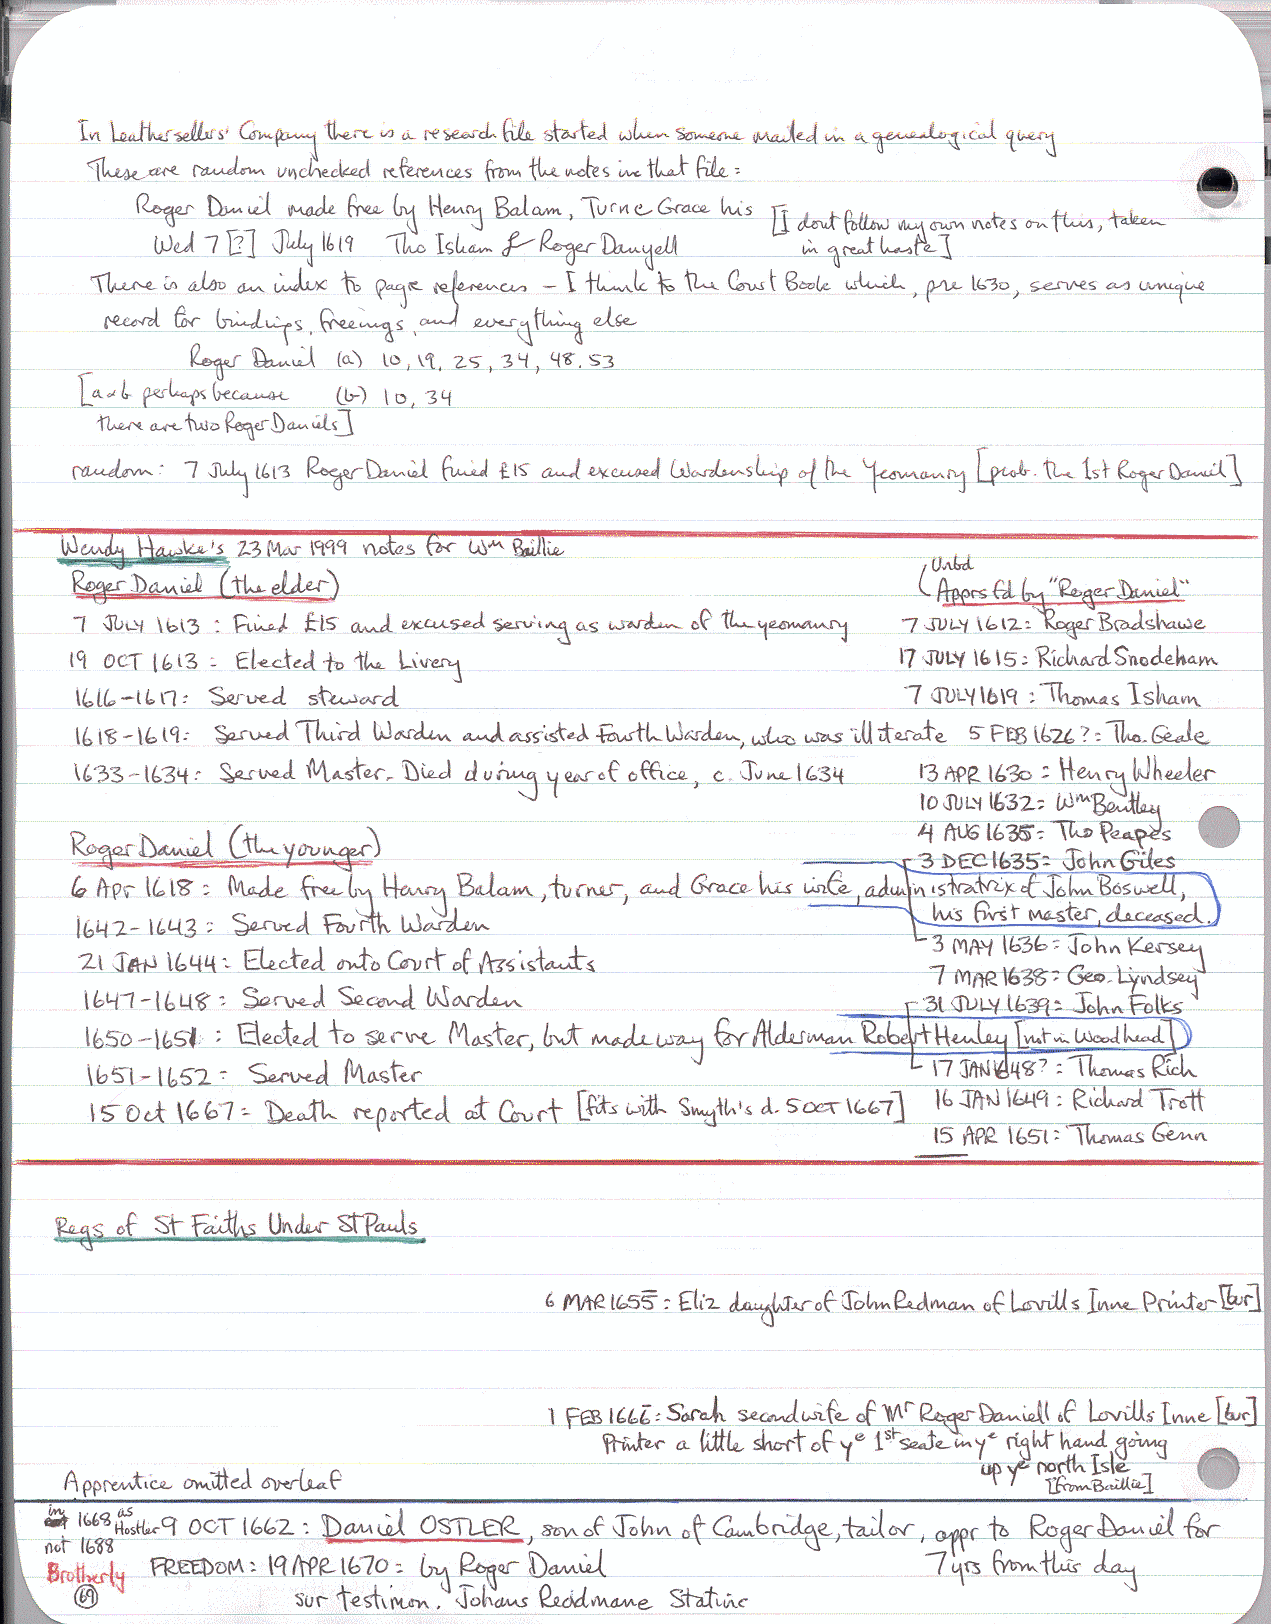 In Leathersellers' Company there is a research file started when someone mailed in a genealogical query
These are random unchecked references from the notes in that file:
Roger Daniel made free by Henry Balam, Turne Grace his
[I dont follow my own notes on this, taken
Wed 7 [?] July 1619 Tho Isham f Roger Danyell
in great haste]
There is also an index to page references – I think to the Court Book which, pre 1630, serves as unique
record for bindings, freeings, and everything else
Roger Daniel (a) 10, 19, 25, 34, 48, 53
[a & b perhaps because (b) 10, 34
there are two Roger Daniels]
random: 7 July 1613 Roger Daniel fined £15 and excused Wardenship of the Yeomanry [prob. the 1st Roger Daniel]
Wendy Hawke's 23 Mar 1999 notes for Wm Baillie
Unbd
Roger Daniel (the elder)
Apprs fd by "Roger Daniel"
7 JULY 1613: Fined £15 and excused serving as warden of the yeomanry
7 JULY 1612: Roger Bradshawe
19 OCT 1613: Elected to the Livery
17 JULY 1615: Richard Snodeham
1616–1617: Served steward
7 JULY 1619: Thomas Isham
1618–1619: Served Third Warden and assisted Fourth Warden, who was illiterate
5 FEB 1626?: Tho. Geale
1633–1634: Served Master. Died during year of office, c. June 1634
13 APR 1630: Henry Wheeler
10 JULY 1632: Wm Bentley
4 AUG 1635: Tho Peapes
Roger Daniel (the younger)
3 DEC 1635: John Giles
6 Apr 1618: Made free by Henry Balam, turner, and Grace his wife, administratrix of John Boswell,
his first master, deceased.
1642–1643: Served Fourth Warden
3 MAY 1636: John Kersey
21 JAN 1644: Elected onto Court of Assistants
7 MAR 1638: Geo. Lyndsey
1647–1648: Served Second Warden
31 JULY 1639: John Folks
1650–1651: Elected to serve Master, but made way for Alderman Robert Henley [not in Woodhead]
1651–1652: Served Master
17 JAN 1648?: Thomas Rich
15 Oct 1667: Death reported at Court [fits with Smyth's d. 5 OCT 1667]
16 JAN 1649: Richard Trott
15 APR 1651: Thomas Genn
Regs of St Faiths Under St Pauls
6 MAR 1655: Eliz daughter of John Redman of Lovills Inne Printer [bur]
1 FEB 1666: Sarah second wife of Mr Roger Daniell of Lovills Inne [bur]
Printer a little short of ye 1st seate in ye right hand going
up ye north Isle
[from Baillie]
Apprentice omitted overleaf
in 1668 as Hostler
not 1688
9 OCT 1662: Daniel OSTLER, son of John of Cambridge, tailor, appr to Roger Daniel for
7 yrs from this day
Brotherly
69
FREEDOM: 19 APR 1670: by Roger Daniel
sur testimon. Johans Readmane Statinr